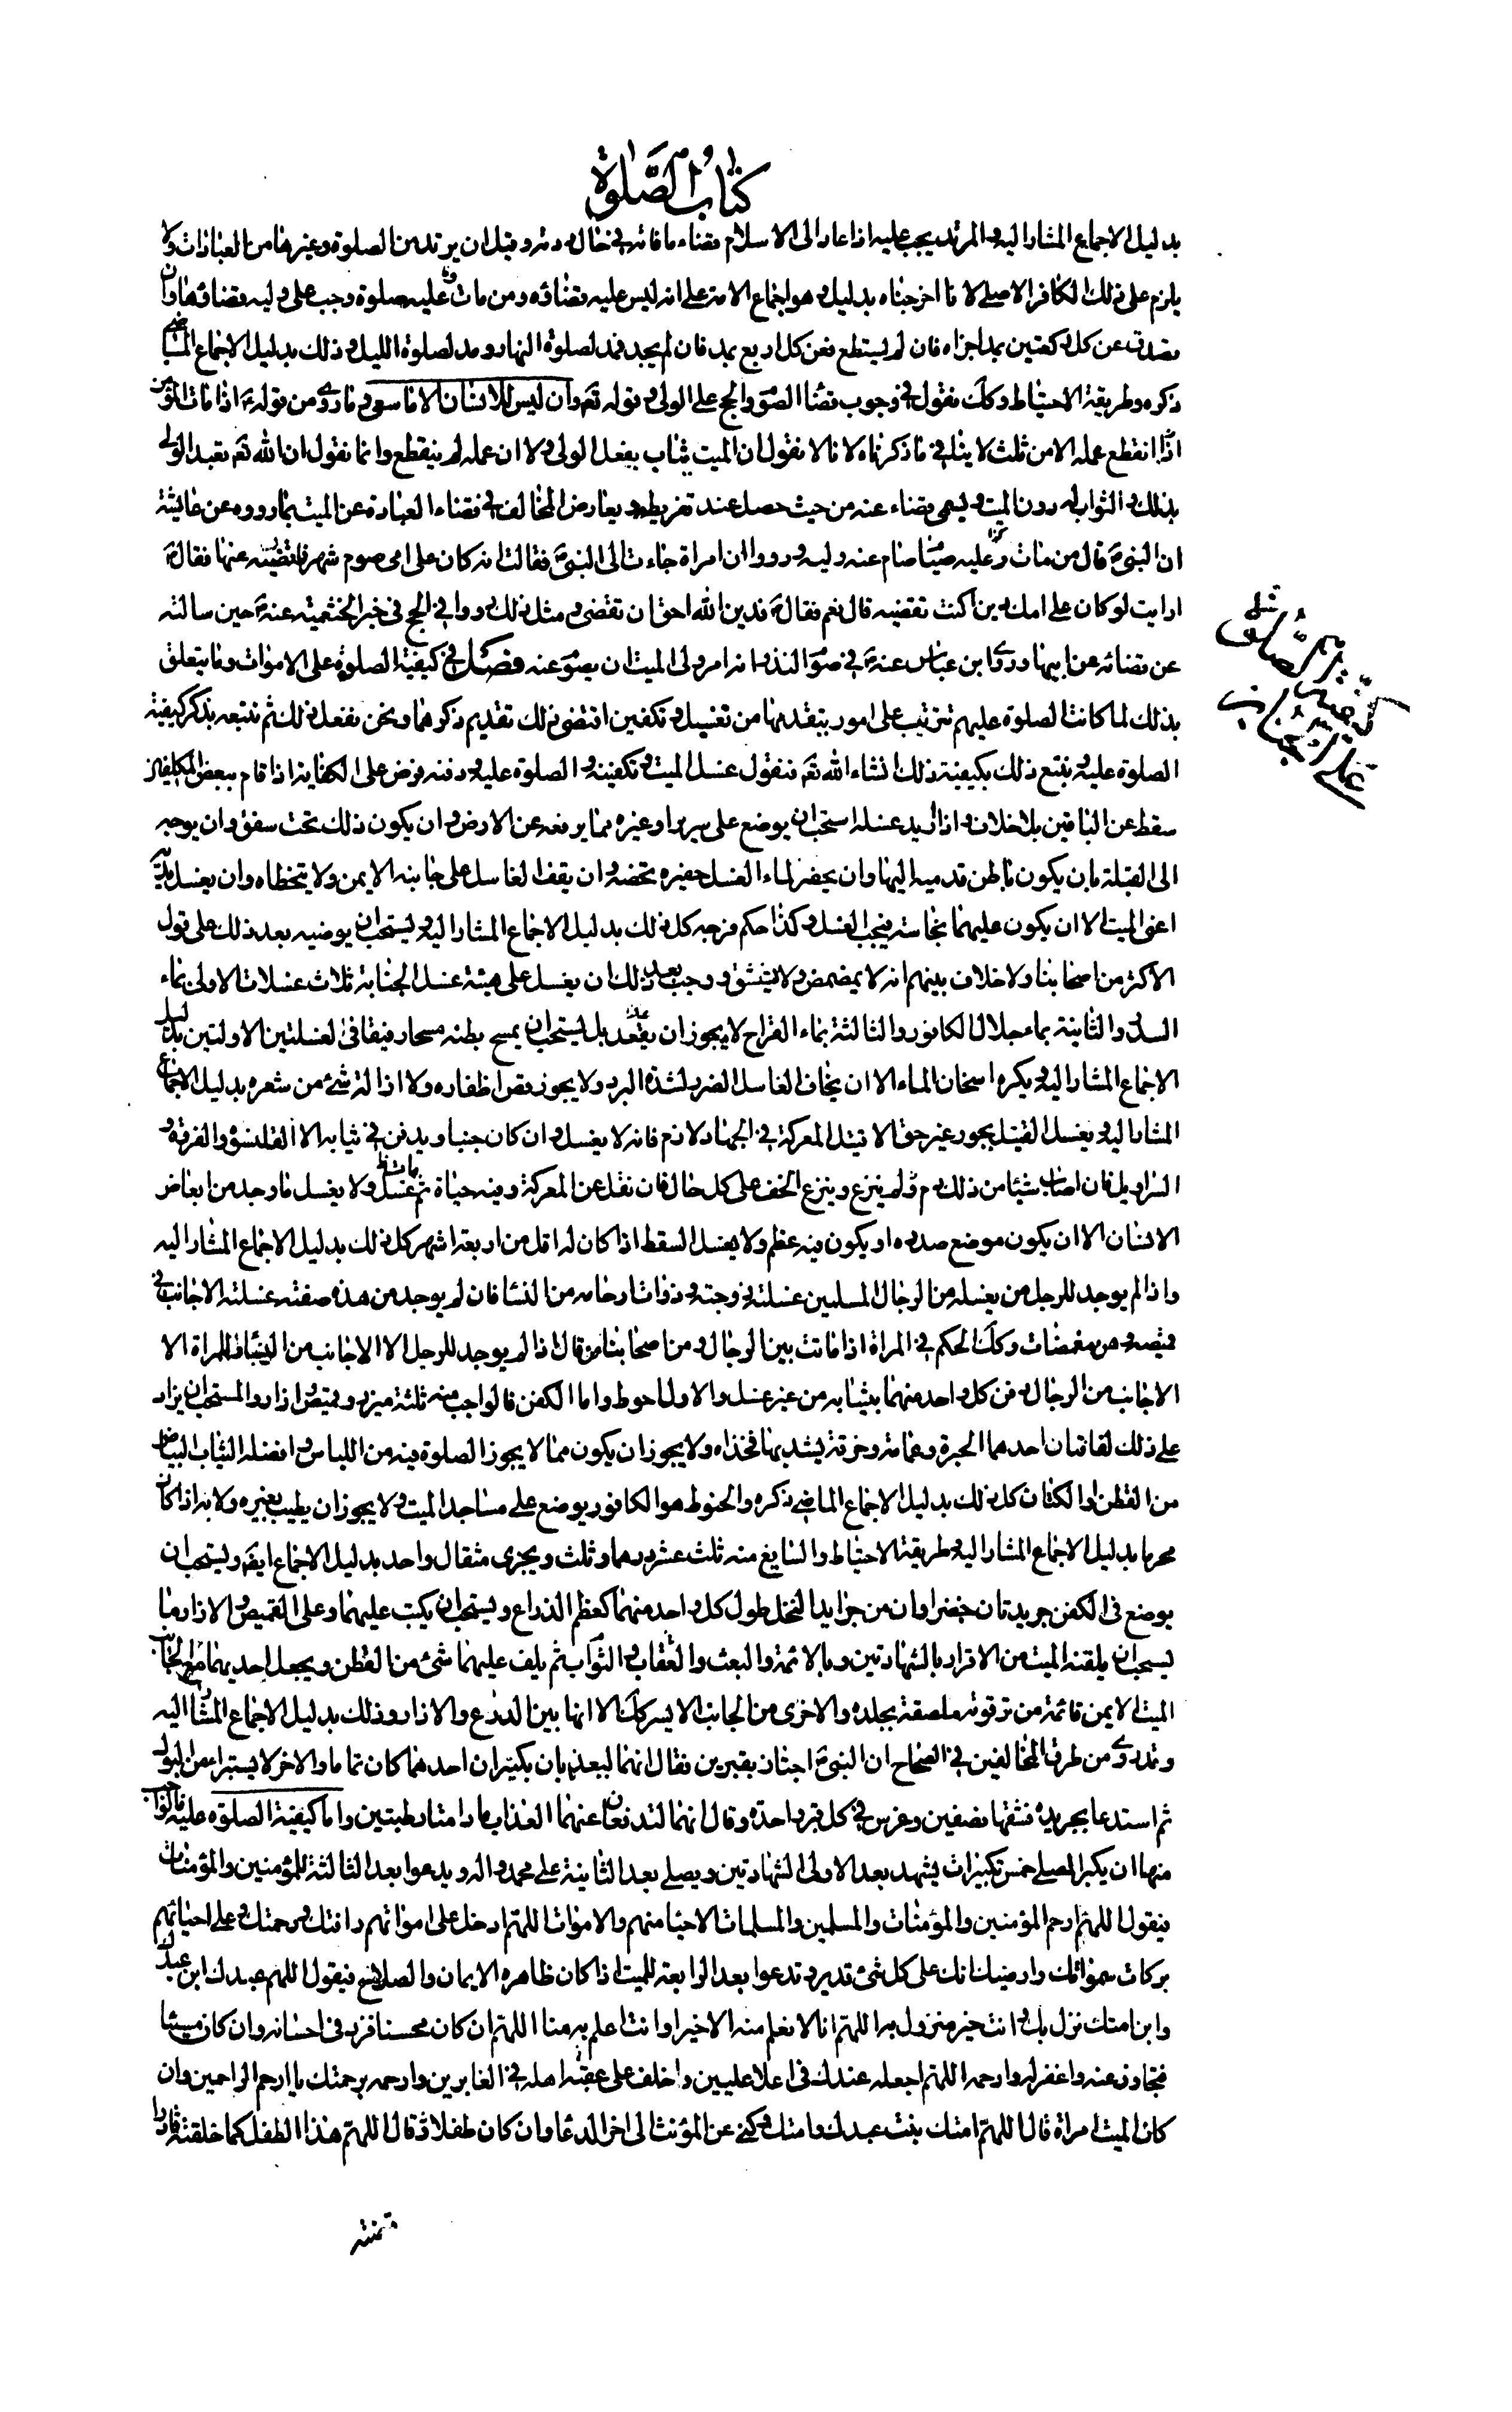 كتاب الصلوة
بدليل الاجماع المشار اليه والمرتد يجب عليه اذا عاد الى الاسلام قضاء ما فاته في حال ردته وقبل ان يرتد من الصلوة وغيرها من العبادات ولا
يلزم على ذلك الكافر الاصلى لانا اخرجناه بدليل وهو اجماع الامة على انه ليس عليه قضاؤه ومن مات وعليه صلوة وجب على وليه قضاؤها وان
تصدق عن كل ركعتين بمد اجزاه فان لم يستطع فعن كل اربع بمد فان لم يجد فمد لصلوة النهار ومد لصلوة الليل وذلك بدليل الاجماع الماضى
ذكره وطريقة الاحتياط وكك نقول في وجوب قضاء الصوم والحج على الولى وقوله تعه وان ليس للانسان الا ما سعى وما روى من قوله ع اذا مات المؤمن
انقطع عمله الا من ثلث لا ينافي ما ذكرناه لانا لا نقول ان الميت يثاب بفعل الولى ولا ان عمله لم ينقطع وانما نقول ان الله تعه تعبد الولى
بذلك والثواب له دون الميت ويسمى قضاء عنه من حيث حصل عند تفريطه ويعارض المخالف في قضاء العبادة عن الميت بما رووه عن عايشة
ان النبى ص قال من مات وعليه صيام صام عنه وليه ورووا ان امراة جاءت الى النبى ص فقالت انه كان على امى صوم شهر فاقضيه عنها فقال ص
ارايت لو كان على امك دين اكنت تقضيه قالت نعم فقال ص فدين الله احق ان تقضى ومثل ذلك رووا في الحج في خبر الخثعمية عنه ص حين سالته
عن قضائه عن ابيها وروى ابن عباس عنه ص في صوم النذر انه امر ولى الميت ان يصوم عنه فصل في كيفية الصلوة على الاموات وما يتعلق
بذلك لما كانت الصلوة عليهم تترتب على امور يتقدمها من تغسيل وتكفين اقتضى ذلك تقديم ذكرها ونحن نفعل ذلك ثم نتبعه بذكر كيفية
الصلوة عليه ونتبع ذلك بكيفية ذلك انشاء الله تعه فنقول غسل الميت وتكفينه والصلوة عليه ودفنه فرض على الكفاية اذا قام به بعض المكلفين
سقط عن الباقين بلا خلاف واذا اريد غسله استحب ان يوضع على سرير او غيره مما يرفعه عن الارض وان يكون ذلك تحت سقف وان يوجه
الى القبلة بان يكون باطن قدميه اليها وان يحفر لماء الغسل حفيرة تخصه وان يقف الغاسل على جانبه الايمن ولا يتخطاه وان يغسل يديه
اعنى الميت الا ان يكون عليهما نجاسة فيجب الغسل وكذا حكم فرجه كل ذلك بدليل الاجماع المشار اليه ويستحب ان يوضيه بعد ذلك على قول
الاكثر من اصحابنا ولا خلاف بينهم انه لا يمضمض ولا يستنشق ووجب بعد ذلك ان يغسل على هيئة غسل الجنابة ثلاث غسلات الاولى بماء
السدر والثانية بماء جلال الكافور والثالثة بماء القراح لا يجوز ان يقعد بل يستحب ان يمسح بطنه مسحا رفيقا في الغسلتين الاولتين بدليل
الاجماع المشار اليه ويكره اسخان الماء الا ان يخاف الغاسل الضرر لشدة البرد ولا يجوز قص اظفاره ولا ازالة شئ من شعره بدليل الاجماع
المشار اليه ويغسل القتيل بجور غير حق الا قتيل المعركة في الجهاد لازم فانه لا يغسل وان كان جنبا ويدفن في ثيابه الا القلنسوة والفروة و
السراويل فان اصاب شيئا من ذلك دم لم ينزع وينزع الخف على كل حال فان نقل عن المعركة وفيه حياة ثم مات غسل ولا يغسل ما وجد من ابعاض
الانسان الا ان يكون موضع صدره او يكون فيه عظم ولا يغسل السقط اذا كان له اقل من اربعة اشهر كل ذلك بدليل الاجماع المشار اليه
واذا لم يوجد للرجل من يغسله من الرجال المسلمين غسلته زوجته وذوات ارحامه من النساء فان لم يوجد من هذه صفته غسلته الاجانب في
قميصه وهن مغمضات وكك الحكم في المراة اذا ماتت بين الرجال ومن اصحابنا من قال اذا لم يوجد للرجل الا الاجانب من النساء والمراة الا
الاجانب من الرجال دفن كل واحد منهما بثيابه من غير غسل والاول احوط واما الكفن فالواجب منه ثلثة ميزر وقميص وازار والمستحب ان يزاد
على ذلك لفافتان احدهما الحبرة وعمامة وخرقة يشد بها فخذاه ولا يجوز ان يكون مما لا يجوز الصلوة فيه من اللباس وافضله الثياب البياض
من القطن او الكتان كل ذلك بدليل الاجماع الماضى ذكره والحنوط هو الكافور يوضع على مساجد الميت ولا يجوز ان يطيب بغيره ولا به اذا كان
محرما بدليل الاجماع المشار اليه وطريقة الاحتياط والسايغ منه ثلث عشر درهما وثلث ويجزى مثقال واحد بدليل الاجماع ايضه ويستحب ان
يوضع في الكفن جريدتان خضراوان من جرايد النخل طول كل واحد منهما كعظم الذراع ويستحب ان يكتب عليهما وعلى القميص والازار ما
يستحب ان يلقنه الميت من الاقرار بالشهادتين وبالائمة والبعث والعقاب والثواب ثم يلف عليهما شئ من القطن ويجعل احديهما مع الجانب
الميت الايمن قائمة من ترقوته ملصقة بجلده والاخرى من الجانب الايسر كك الا انها بين الدرع والازار وذلك بدليل الاجماع المشار اليه
وقد روى من طرق المخالفين في الصحاح ان النبى ص اجتاز بقبرين فقال انهما ليعذبان بكبير ان احدهما كان نماما والاخر لا يستبرء من البول
ثم استدعا بجريدة فشقها نصفين وغرس في كل قبر واحدة وقال انهما لتدفعان عنهما العذاب ما دامتا رطبتين واما كيفية الصلوة عليه فالواجب
منها ان يكبر المصلى خمس تكبيرات يشهد بعد الاولى الشهادتين ويصلى بعد الثانية على محمد واله ويدعوا بعد الثالثة للمؤمنين والمؤمنات
فيقول اللهم ارحم المؤمنين والمؤمنات والمسلمين والمسلمات الاحياء منهم والاموات اللهم ادخل على امواتهم رافتك ورحمتك وعلى احيائهم
بركات سمواتك وارضيك انك على كل شئ قدير وتدعوا بعد الرابعة للميت اذا كان ظاهره الايمان والصلاح فيقول اللهم عبدك ابن عبدك
وابن امتك نزل بك وانت خير منزول به اللهم انا لا نعلم منه الا خيرا وانت اعلم به منا اللهم ان كان محسنا فزد في احسانه وان كان مسيئا
فتجاوز عنه واغفر له وارحمه اللهم اجعله عندك في اعلا عليين واخلف على عقبه اهله في الغابرين وارحمه برحمتك يا ارحم الراحمين وان
كان الميت امراة قال اللهم امتك بنت عبدك وامتك وكنى عن المؤنث الى اخر الدعا وان كان طفلا قال اللهم هذا الطفل كما خلقته قادرا
كيفية الصلوة
على الجنازة